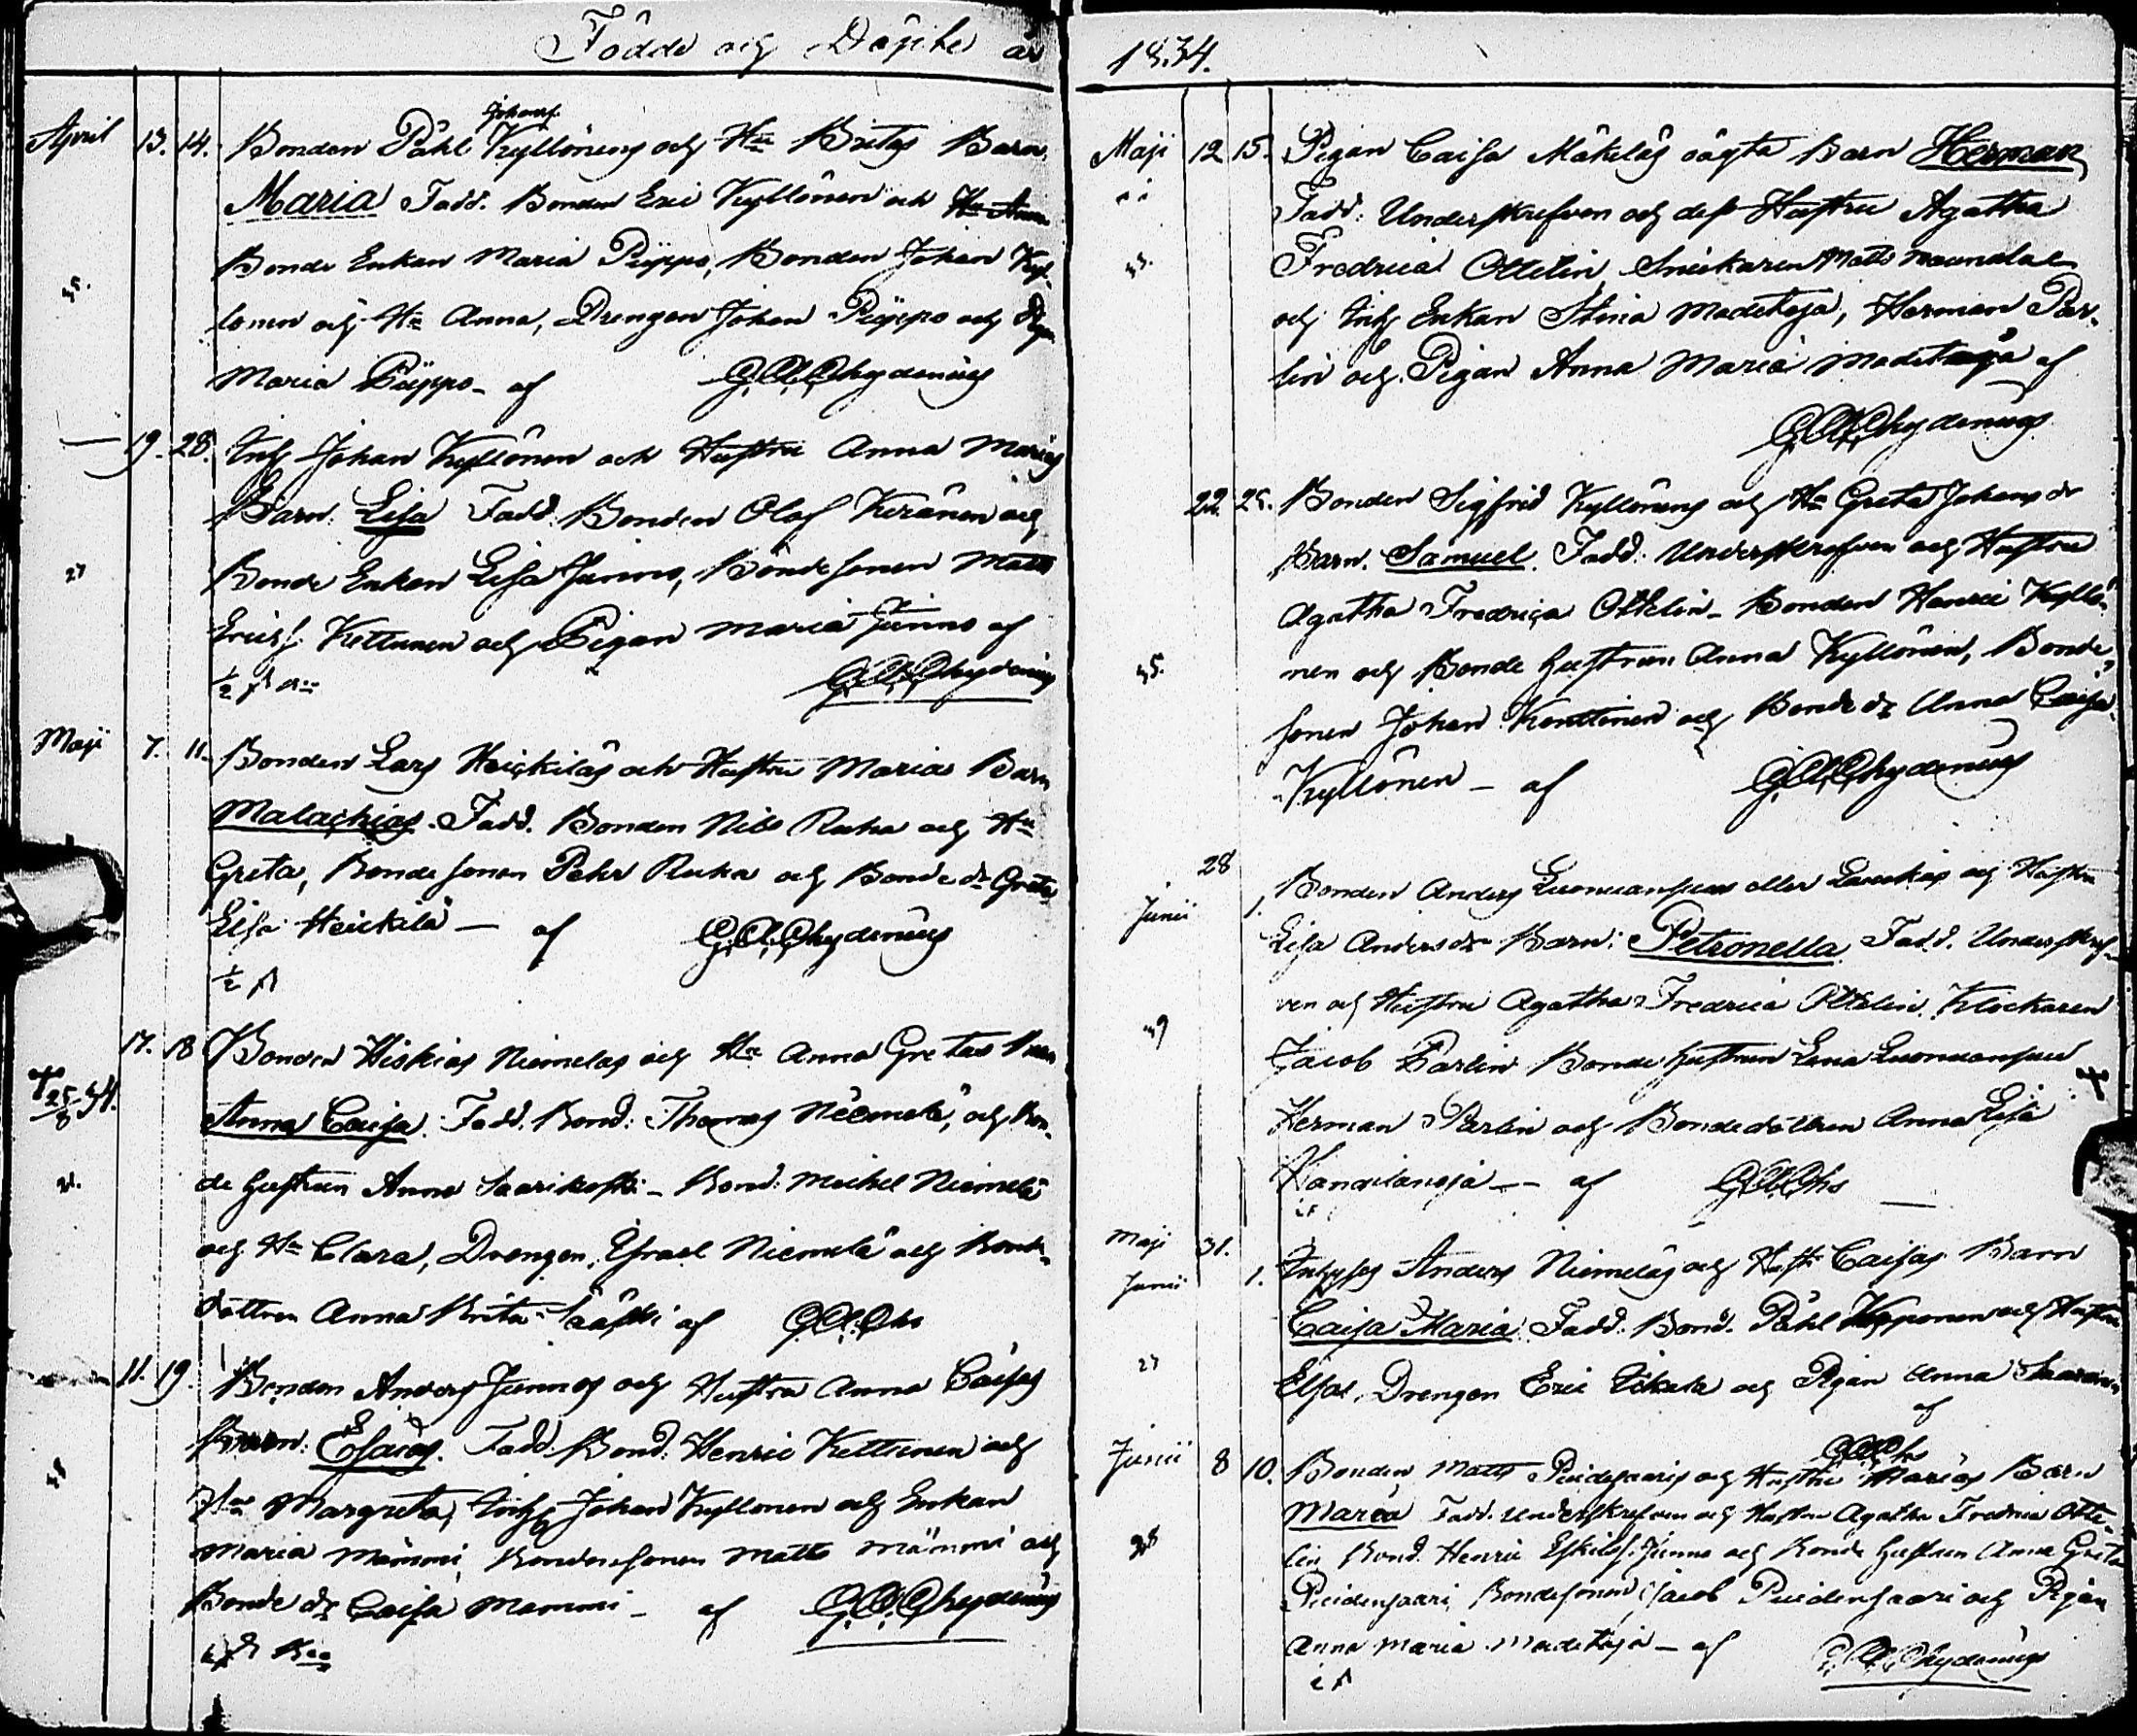 Födde och Döpte år 1834.
April 13. 14. Bonden Påhl Johansf. Kyllönens och Hu Britas Barn
Maria Fadd. Bonden Eric Kyllönen och
45. Bonde Enkan Maria Piippo, Bonden Johan Kyl-
lönen och Hu Anna, Drengen Johan Piippo och Pig.
Maria Piippo - af G.A. Chydenius
— 19. 28. Inh. Johan Kyllönen och Hustru Anna Marias
Barn: Lisa Fadd. Bonden Olof Keränen och
27 Bonde Enkan Lisa Junno, Bondesonen Matts
Ericsf. Kettunen och Pigan Maria Junno af
G.A. Chydenius
Maji 7. 11. Bonden Lars Heickiläs och Hustru Marias Barn
Malachias. Fadd. Bonden Nils Ruha och Hu
Greta, Bondesonen Pehr Ruha och Bonde dr Greta
Lisa Heickilä — af G.A. Chydenius
17. 18 Bonden Hiskias Niemeläs och Hu Anna Gretas Barn
† 25/8 34. Anna Caisa. Fadd. Bond: Thomas Niemelä, och Bon-
de hustrun Anna Saarikoski - Bond. Michel Niemelä
och Hu Clara, Drengen Israel Niemelä och Bonde
dottren Anna Brita Sääski af G.A. Chs
11. 19. Bonden Anders Junnos och Hustru Anna Caisas
Barn: Esaias. Fadd. Bond. Henric Kettunen och
Hu Margreta, Inh. Johan Kyllönen och Enkan
Maria Mämmi, Bondesonen Matts Mämmi och
Bonde dr Caisa Mammi - af G.A. Chydenius
Maji 12 15. Pigan Caisa Mäkeläs oägta Barn Herman
Fadd: Underskrefven och dess Hustru Agatha
Fredrica Ottelin Snickaren Matts
och Inh. Enkan Stina Madetoja, Herman Par-
lin och Pigan Anna Maria Madetoja af
G.A. Chydenius
22. 25. Bonden Sigfrid Kyllönens och Hu Greta Johans dr
Barn. Samuel. Fadd: Underskrefven och Hustru
Agatha Fredrica Ottelin - Bonden Henric Kyllö-
45. nen och Bonde hustrun Anna Kyllönen, Bonde
sonen Johan Konttinen och Bonde dr Anna Caisa
Kyllönen - af G.A. Chydenius
28
Junii 1. Bonden Anders eller och Hustru
Lisa Andersdr Barn: Petronella. Fadd. Underskref-
ven och Hustru Agatha Fredrica Ottelin. Klockaren
39 Jacob Parlin Bonde hustrun Lena
Herman Parlin och Bondedottren Anna Lisa
— af G.A. Chs
Maji 31.
Junii 1. Inhyses Anders Niemeläs och Hust. Caisas Barn
Caisa Maria. Fadd: Bond. Påhl och Hustru
27 Elsa, Drengen Eric och Pigan Anna
af
G.A. Chs
Junii 8 10. Bonden Matts och Hustru Marias Barn
Maria Fadd. Underskrefven och Hustru Agatha Fredrica Otte-
lin Bond. Henric Eskilsf. Junno och Bonde hustrun Anna Greta
Puidensaari, Bondesonen Jacob Puidensaari och Pigan
Anna Maria Madetoja - af G.A. Chydenius